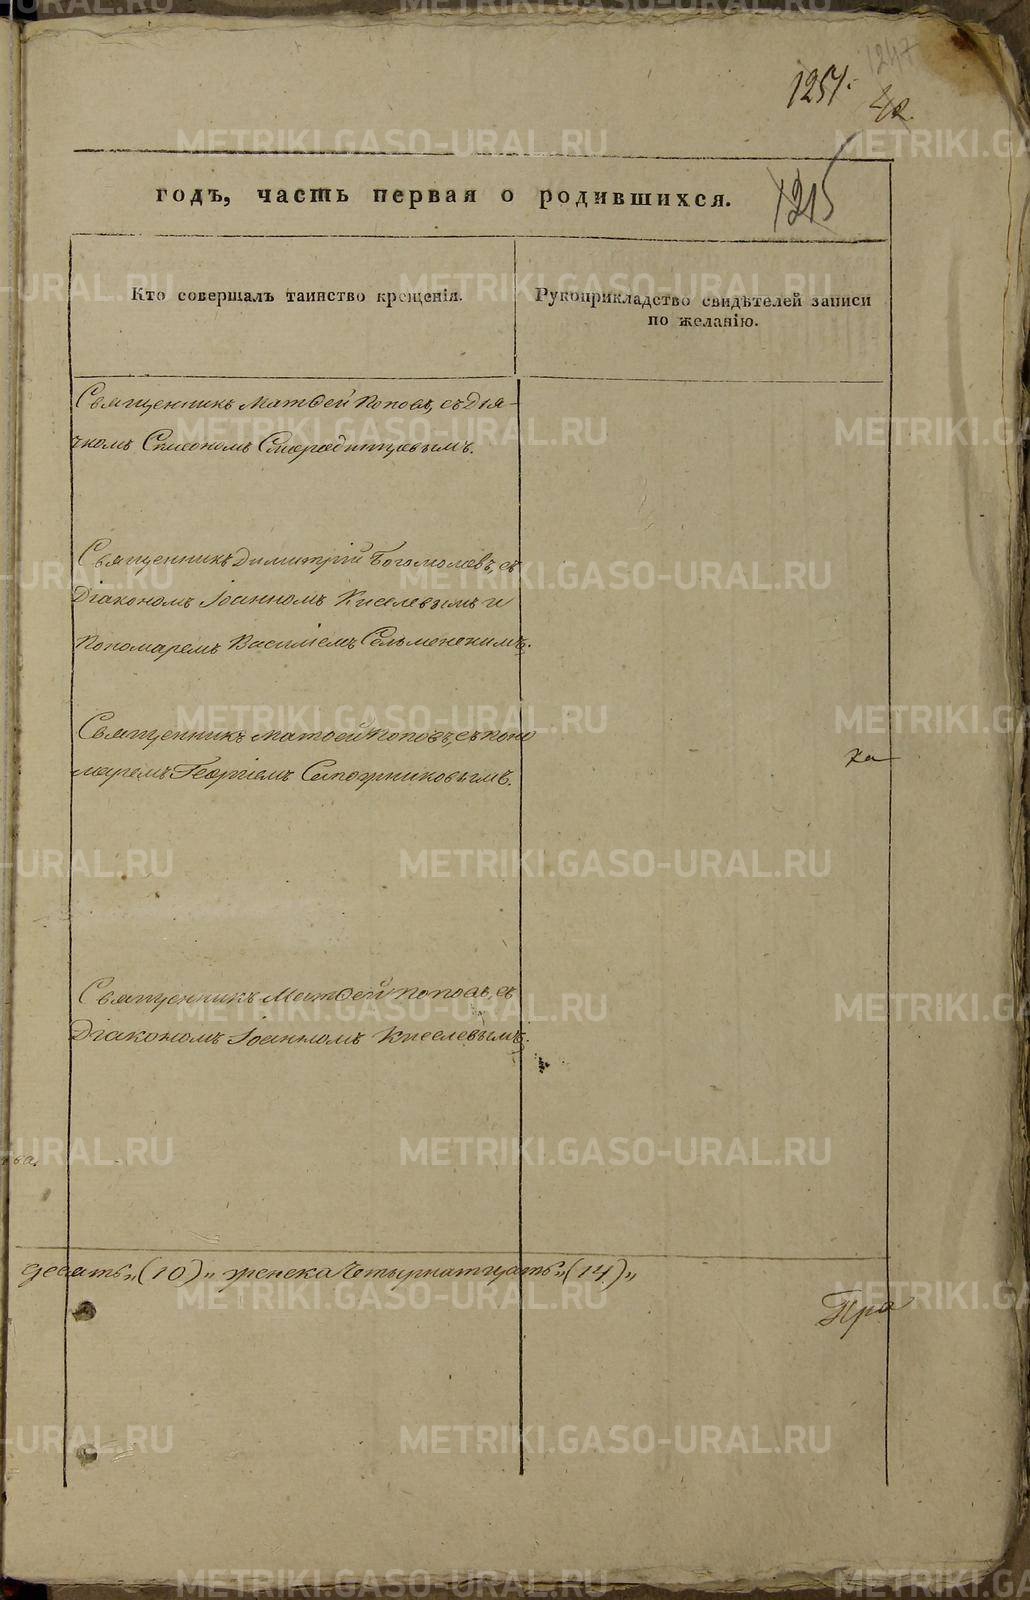 1251.
1247
42.
годъ, часть первая о родившихся.
1215
Кто совершалъ таинство крещенія.
Рукоприкладство свидѣтелей записи
по желанію.
Священникъ Матѳей Поповъ, съ Дья-
чкомъ Симеономъ Смородинцовымъ.
Священникъ Димитрій Богомоловъ, съ
Діакономъ Іоанномъ Киселевымъ и
Пономаремъ Василіемъ Сельменскимъ.
Священникъ Матѳей Поповъ, съ поно
маремъ Георгіемъ Сапожниковымъ.
ха
Священникъ Матѳей Поповъ, съ
Діакономъ Іоанномъ Киселевымъ.
ва.
десять„(10)„ женска Четырнатцать„(14)„
Пра
METRIKI.GASO-URAL.RU